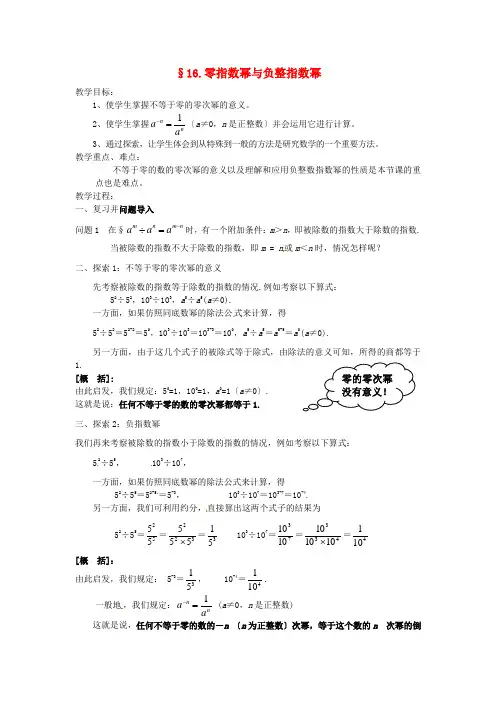 §16.零指数幂与负整指数幂
教学目标:
1、使学生掌握不等于零的零次幂的意义。
2、使学生掌握a⁻ⁿ = 1/aⁿ〔a≠0，n是正整数〕并会运用它进行计算。
3、通过探索，让学生体会到从特殊到一般的方法是研究数学的一个重要方法。
教学重点、难点：
不等于零的数的零次幂的意义以及理解和应用负整数指数幂的性质是本节课的重
点也是难点。
教学过程：
一、复习并问题导入
问题1 在§ aᵐ÷aⁿ=aᵐ⁻ⁿ时，有一个附加条件：m＞n，即被除数的指数大于除数的指数.
当被除数的指数不大于除数的指数，即m = n或m＜n时，情况怎样呢？
二、探索1：不等于零的零次幂的意义
先考察被除数的指数等于除数的指数的情况.例如考察以下算式：
5²÷5²，10³÷10³，a⁵÷a⁵(a≠0).
一方面，如果仿照同底数幂的除法公式来计算，得
5²÷5²＝5²⁻²＝5⁰，10³÷10³＝10³⁻³＝10⁰，a⁵÷a⁵＝a⁵⁻⁵＝a⁰(a≠0).
另一方面，由于这几个式子的被除式等于除式，由除法的意义可知，所得的商都等于
1.
[概 括]:
由此启发，我们规定：5⁰=1，10⁰=1，a⁰=1〔a≠0〕.
这就是说：任何不等于零的数的零次幂都等于1.
零的零次幂
没有意义！
三、探索2：负指数幂
我们再来考察被除数的指数小于除数的指数的情况，例如考察以下算式：
5²÷5⁵， 10³÷10⁷，
一方面，如果仿照同底数幂的除法公式来计算，得
5²÷5⁵＝5²⁻⁵＝5⁻³， 10³÷10⁷＝10³⁻⁷＝10⁻⁴.
另一方面，我们可利用约分，直接算出这两个式子的结果为
5²÷5⁵＝5²/5⁵＝5²/(5²×5³)＝1/5³ 10³÷10⁷＝10³/10⁷＝10³/(10³×10⁴)＝1/10⁴
[概 括]：
由此启发，我们规定： 5⁻³＝1/5³， 10⁻⁴＝1/10⁴.
一般地，我们规定：a⁻ⁿ = 1/aⁿ (a≠0，n是正整数)
这就是说，任何不等于零的数的－n 〔n为正整数〕次幂，等于这个数的n 次幂的倒